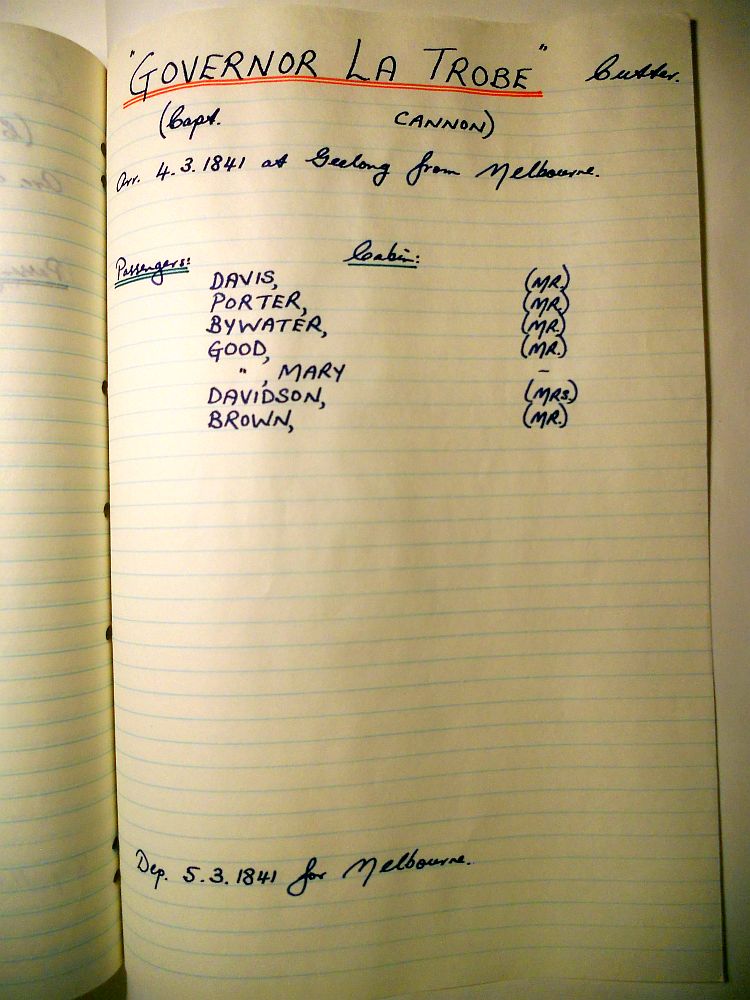 "GOVERNOR LA TROBE" Cutter.
(Capt. CANNON)
Arr. 4.3.1841 at Geelong from Melbourne.
Passengers: Cabin:
DAVIS, (MR.)
PORTER, (MR.)
BYWATER, (MR.)
GOOD, (MR.)
" , MARY –
DAVIDSON, (MRS.)
BROWN, (MR.)
Dep. 5.3.1841 for Melbourne.